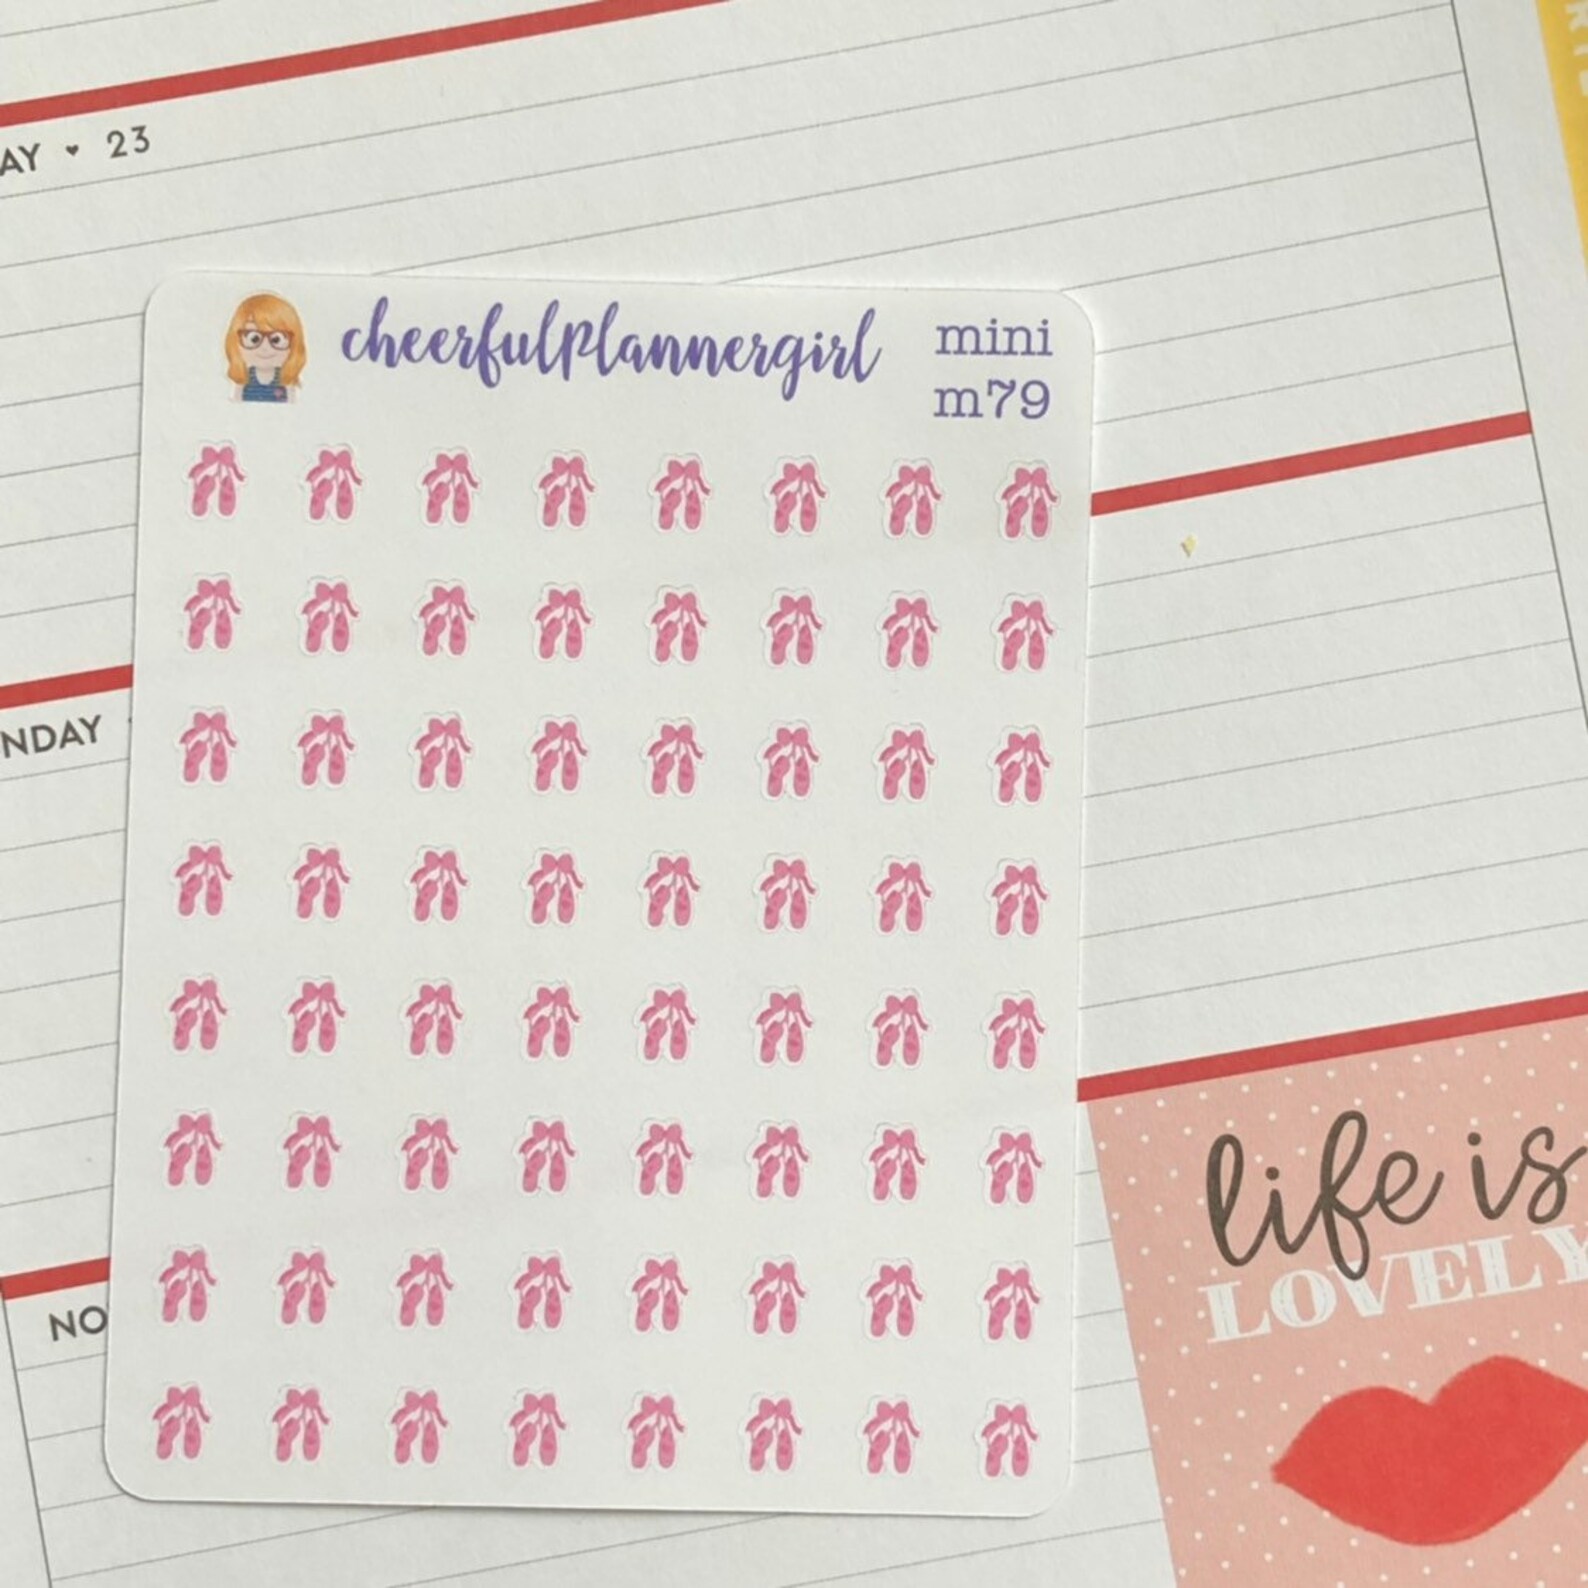 AY ♥ 23
cheerfulplannergirl
mini
m79
NDAY
NO
life is
LOVELY